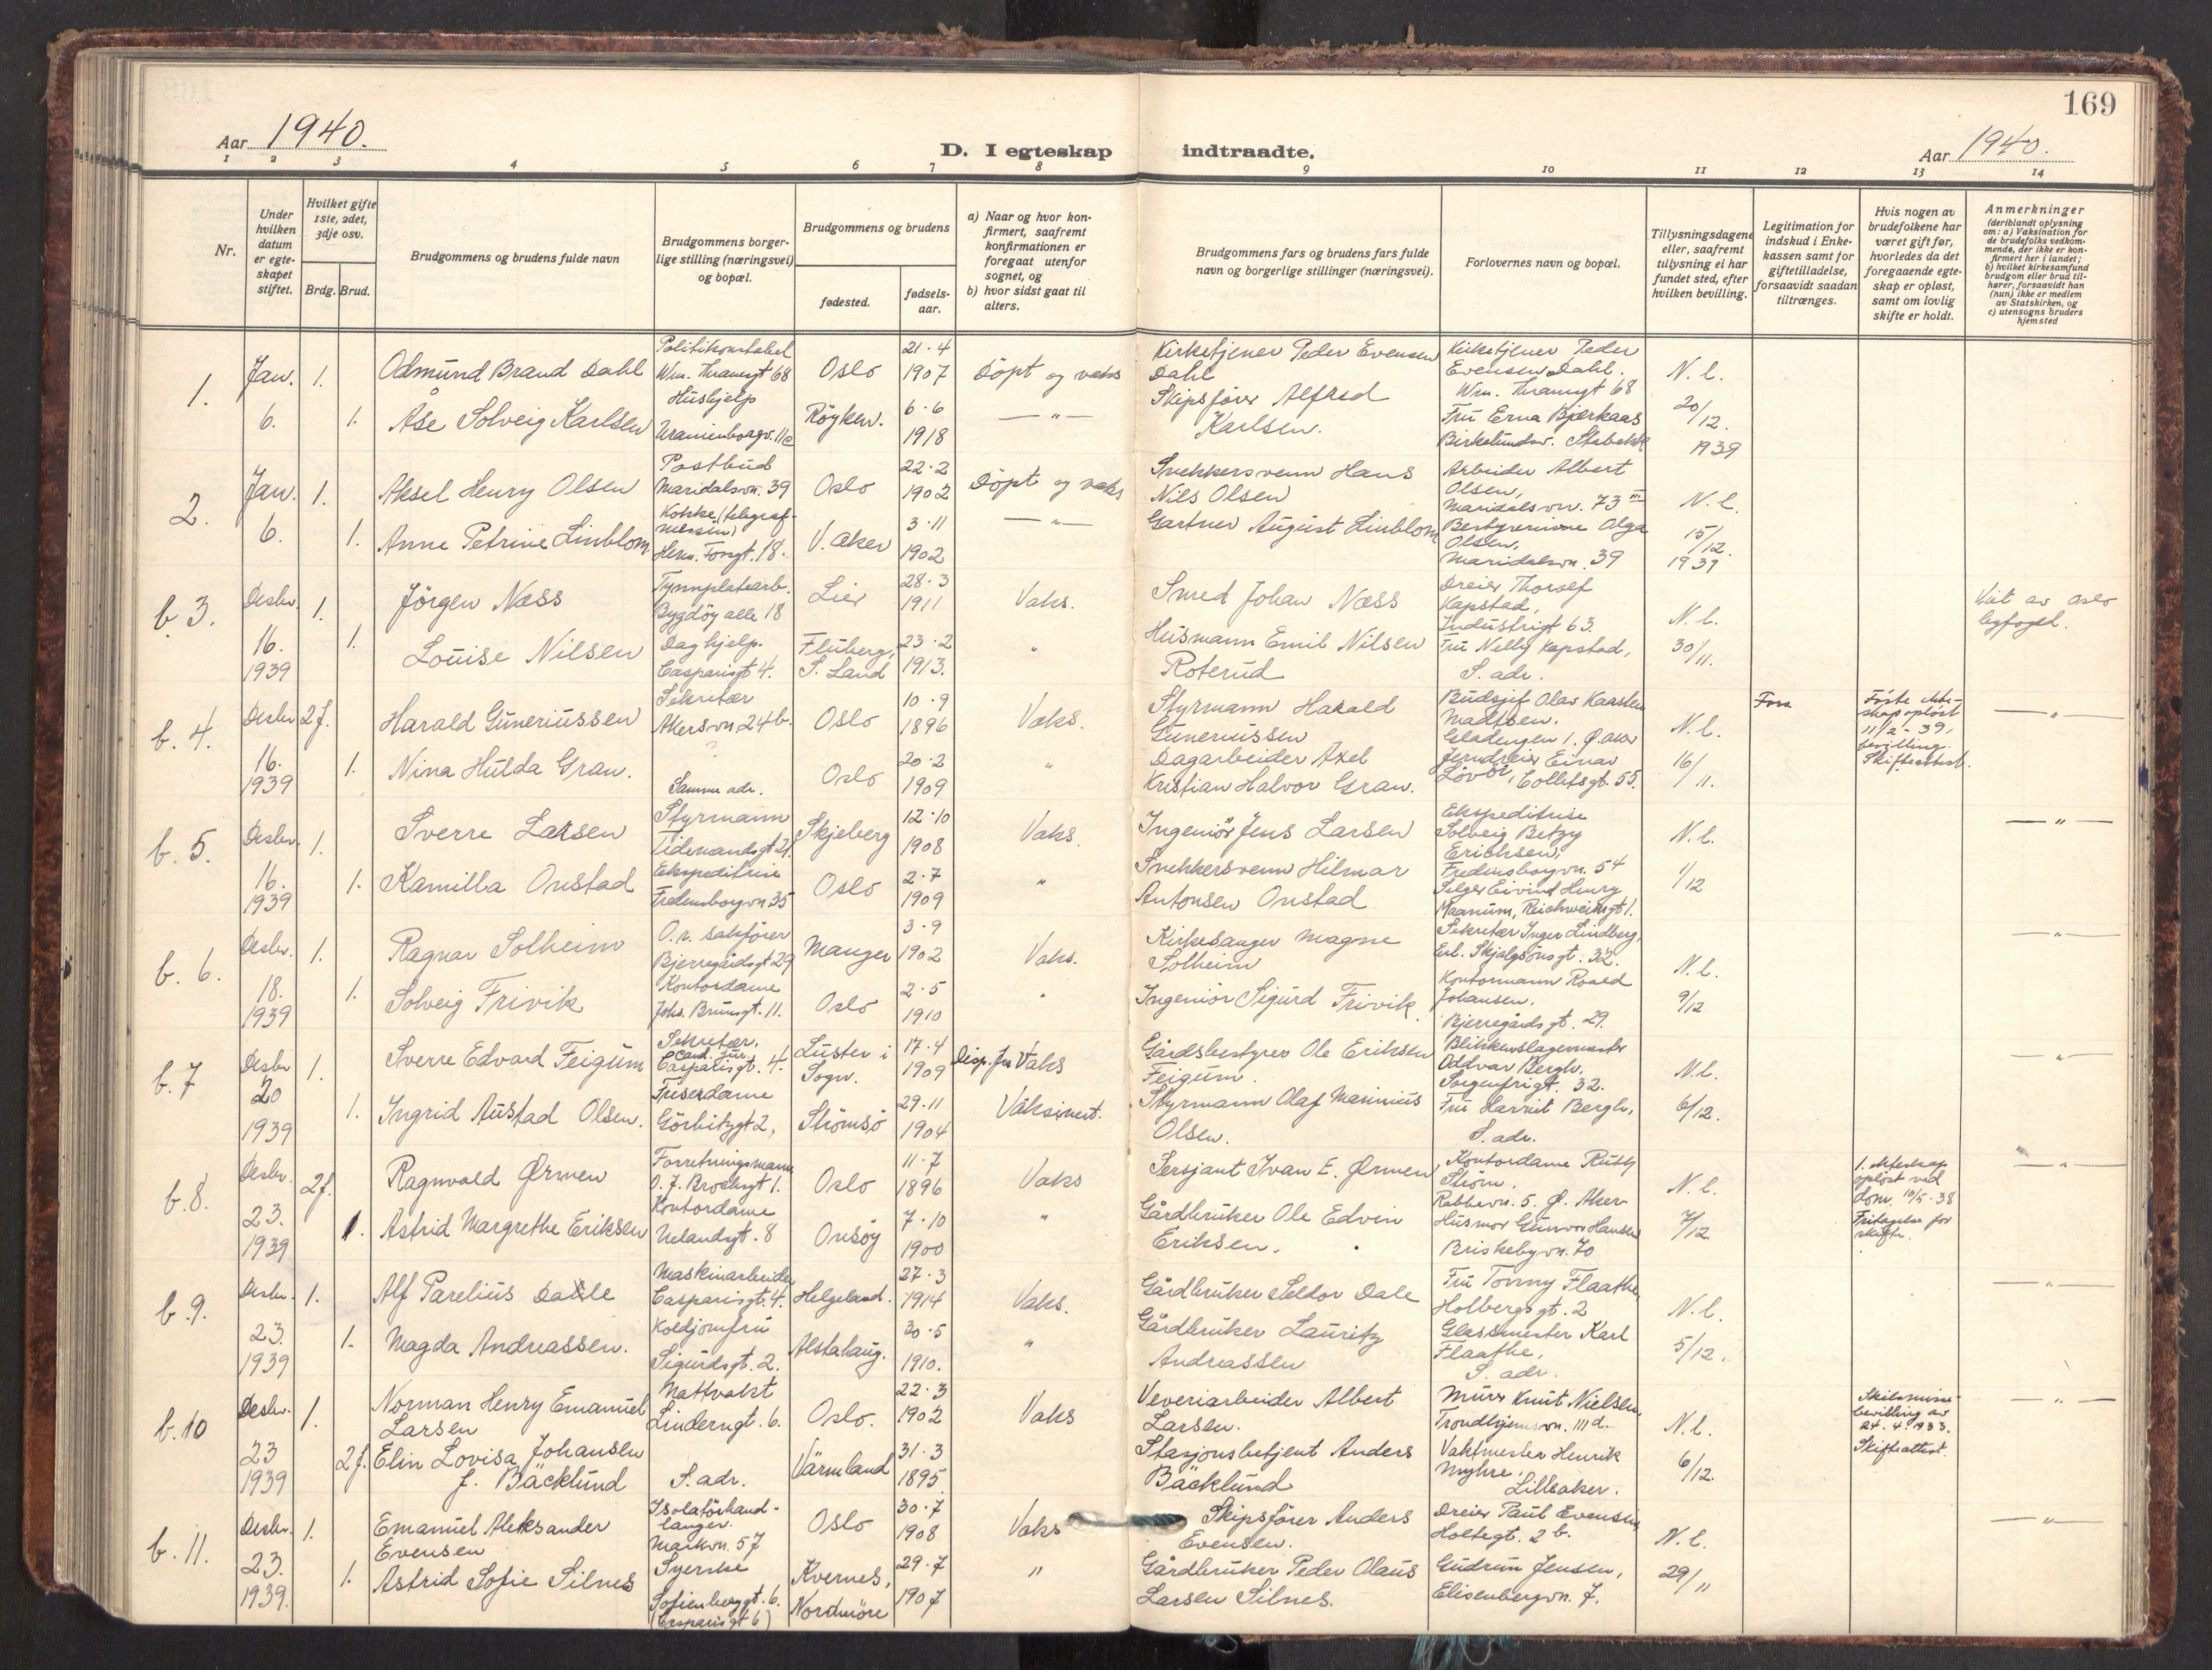 169
Aar 1940.
D. I egteskap indtraadte.
Aar 1940.
1 2 3 4 5 6 7 8 9 10 11 12 13 14
Nr.
Under hvilken datum er egteskapet stiftet.
Hvilket gifte 1ste, 2det, 3dje osv.
Brdg. Brud.
Brudgommens og brudens fulde navn
Brudgommens borgerlige stilling (næringsvei) og bopæl.
Brudgommens og brudens
fødested.
fødselsaar.
a) Naar og hvor konfirmert, saafremt konfirmationen er foregaat utenfor sognet, og
b) hvor sidst gaat til alters.
Brudgommens fars og brudens fars fulde navn og borgerlige stillinger (næringsvei).
Forlovernes navn og bopæl.
Tillysningsdagene eller, saafremt tillysning ei har fundet sted, efter hvilken bevilling.
Legitimation for indskud i Enkekassen samt for giftetilladelse, forsaavidt saadan tiltrænges.
Hvis nogen av brudefolkene har været gift før, hvorledes da det foregaaende egteskap er opløst, samt om lovlig skifte er holdt.
Anmerkninger
(deriblandt oplysning om: a) Vaksination for de brudefolks vedkommende, der ikke er konfirmert her i landet;
b) hvilket kirkesamfund brudgom eller brud tilhører, forsaavidt han (hun) ikke er medlem av Statskirken, og
c) utensogns bruders hjemsted
1. Jan. 6. 1. Odmund Brand Dahl Politikonstabel Wm. Thranesgt 68 Oslo 21.4 1907 Döpt og vaks Kirketjener Peder Evensen Dahl Kirketjener Peder Evensen Dahl. Wm. Thranesgt 68 N.l. 20/12. 1939
1. Åse Solveig Karlsen Hushjelp Uranienborgv. 11e Röyken. 6.6 1918 —"— Skipsförer Alfred Karlsen. Fru Erna Bjerkaas Birkelundsv. Stabekk
2. Jan. 6. 1. Aksel Henry Olsen Postbud Maridalsvn. 39 Oslo 22.2 1902 Döpt og vaks Snekkersvenn Hans Nils Olsen Arbeider Albert Olsen, Maridalsvn. 73 III N.l. 15/12. 1939
1. Anne Petrine Linblom Kokke (telegrafmessen) Herm. Fossgt. 18. V. Aker 3.11 1902 —"— Gartner August Linblom Bestyrerinne Olga Olsen, Maridalsvn. 39
b. 3. Desbr. 16. 1939 1. Jörgen Næss Tynnplatearb. Bygdöy alle 18 Lier 28.3 1911 Vaks. Smed Johan Næss Dreier Thorolf Kapstad, Industrigt 63. N.l. 30/11. av Oslo byfogd.
1. Louise Nilsen Daghjelp. Casparisgt 4. Fluberg, S. Land 23.2 1913. " Husmann Emil Nilsen Roterud Fru Nelly Kapstad, S. adr.
b. 4. Desbr 16. 1939 2 f. Harald Guneriussen Sekretær Akersvn 24 b. Oslo 10.9 1896 Vaks. Styrmann Harald Guneriussen Budsjef Olav Karsten Madsen. Gladengen 1. Ø. Aker N.l. 16/11. Første ekteskap opløst 11/2-39, bevilling. Skifteattest. —"—
1. Nina Hulda Gran. Samme adr. Oslo 20.2 1909 " Dagarbeider Axel Kristian Halvor Gran. Jerndreier Einar Collettsgt. 55.
b. 5. Desbr. 16. 1939 1. Sverre Larsen Styrmann Tidemandsgt 21. Skjeberg 12.10 1908 Vaks. Ingeniör Jens Larsen Ekspeditrise Solveig Betzy Erichsen, Fredensborgvn. 54 N.l. 1/12 —"—
1. Kamilla Onstad Ekspeditrise Fredensborgvn 35 Oslo 2.7 1909 " Snekkersvenn Hilmar Antonsen Onstad Selger Eivind Henry Maanum, Reichweinsgt 1.
b. 6. Desbr. 18. 1939 1. Ragnar Solheim O.r. sakförer Bjerregårdsgt 29 Manger 3.9 1902 Vaks. Kirkesanger Magne Solheim Sekretær Inger Lindberg, Erl. Skjalgsönsgt. 32. N.l. 9/12 —"—
1. Solveig Frivik Kontordame Johs. Brunsgt. 11. Oslo 2.5 1910 " Ingeniör Sigurd Frivik Kontormann Roald Johansen. Bjerregårdsgt. 29.
b. 7 Desbr 20 1939 1. Sverre Edvard Feigum Sekretær. Cand. jur. Casparisgt. 4. Luster i Sogn. 17.4 1909 Vaks Gårdsbestyrer Ole Eriksen Feigum. Blikkenslagermester Oddvar Bergh, Sorgenfrigt. 32. N.l. 6/12. —"—
1. Ingrid Austad Olsen. Friserdame Görbitzgt 2, Strömsö 29.11 1904 Vaksinert. Styrmann Olaf Marinius Olsen. Fru Harriet Bergh, S. adr.
b. 8. Desbr. 23. 1939 2 f. Ragnvald Ørmen Forretningsmann O. J. Brochsgt 1. Oslo 11.7 1896 Vaks Sersjant Ivan E. Ørmen Kontordame Ruth Ström. Rabbevn. 5. Ø. Aker N.l. 7/12. 1. ekteskap opløst ved dom. 10/5-38 Fritagelse for skifte. —"—
1. Astrid Margrethe Eriksen Kontordame Uelandsgt. 8 Onsöy 7.10 1900 " Gårdbruker Ole Edvin Eriksen. Husmor Gunvor Hansen Briskebyvn. 70
b. 9. Desbr. 23. 1939 1. Alf Parelius Dale Maskinarbeider Casparisgt. 4. Helgeland. 27.3 1914 Vaks. Gårdbruker Seldor Dale Fru Tonny Flaathe, Holbergsgt. 2 N.l. 5/12. —"—
1. Magda Andreassen. Koldjomfru Sigurdsgt. 2. Alstahaug. 30.5 1910. " Gårdbruker Lauritz Andreassen Glassmester Karl Flaathe, S. adr.
b. 10 Desbr. 23 1939 1. Norman Henry Emanuel Larsen Nattvakt Linderngt. 6. Oslo. 22.3 1902 Vaks Veveriarbeider Albert Larsen. Murer Knut Nielsen, Trondhjemsvn. 111 d. N.l. 6/12. Skilsmissebevilling av 24.4.1933. Skifteattest. —"—
2 f. Elin Lovisa Johansen f. Bäcklund S. adr. Värmland 31.3 1895 Stasjonsbetjent Anders Bäcklund Vaktmester Henrik Myhre, Lilleaker.
b. 11. Desbr. 23. 1939. 1. Emanuel Aleksander Evensen Isolatörhandlanger. Markvn. 57 Oslo 30.7 1908 Vaks Skipsförer Anders Evensen. Dreier Paul Evensen, Holtegt. 2 b. N.l. 29/11 —"—
1. Astrid Sofie Silnes Syerske Sofienberggt. 6. (Casparisgt 6) Kvernes, Nordmöre 29.7 1907 " Gårdbruker Peder Olaus Larsen Silnes. Gudrun Jensen, Elisenbergvn. 7.